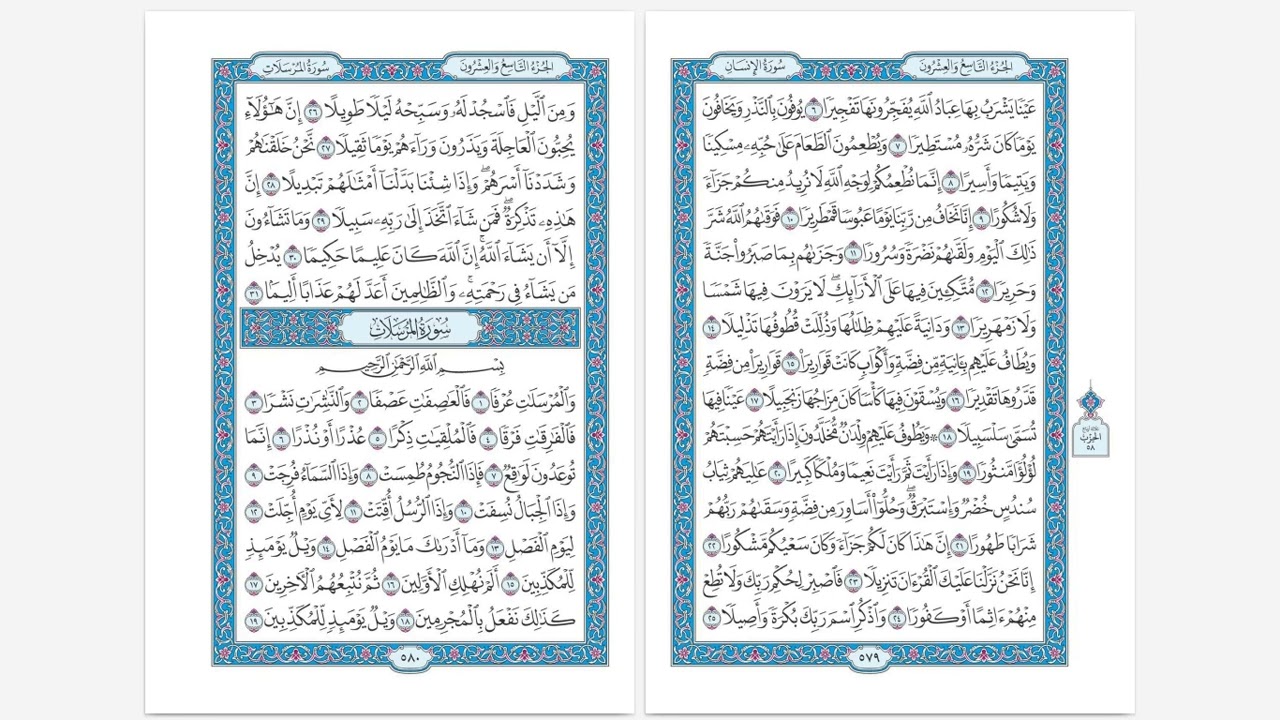 الجُزْءُ التَّاسِعُ وَالعِشْرُونَ
سُورَةُ الإِنسَانِ
عَيْنًا يَشْرَبُ بِهَا عِبَادُ ٱللَّهِ يُفَجِّرُونَهَا تَفْجِيرًا ٦ يُوفُونَ بِٱلنَّذْرِ وَيَخَافُونَ
يَوْمًا كَانَ شَرُّهُۥ مُسْتَطِيرًا ٧ وَيُطْعِمُونَ ٱلطَّعَامَ عَلَىٰ حُبِّهِۦ مِسْكِينًا
وَيَتِيمًا وَأَسِيرًا ٨ إِنَّمَا نُطْعِمُكُمْ لِوَجْهِ ٱللَّهِ لَا نُرِيدُ مِنكُمْ جَزَآءً
وَلَا شُكُورًا ٩ إِنَّا نَخَافُ مِن رَّبِّنَا يَوْمًا عَبُوسًا قَمْطَرِيرًا ١٠ فَوَقَىٰهُمُ ٱللَّهُ شَرَّ
ذَٰلِكَ ٱلْيَوْمِ وَلَقَّىٰهُمْ نَضْرَةً وَسُرُورًا ١١ وَجَزَىٰهُم بِمَا صَبَرُوا۟ جَنَّةً
وَحَرِيرًا ١٢ مُّتَّكِـِٔينَ فِيهَا عَلَى ٱلْأَرَآئِكِ ۖ لَا يَرَوْنَ فِيهَا شَمْسًا
وَلَا زَمْهَرِيرًا ١٣ وَدَانِيَةً عَلَيْهِمْ ظِلَٰلُهَا وَذُلِّلَتْ قُطُوفُهَا تَذْلِيلًا ١٤
وَيُطَافُ عَلَيْهِم بِـَٔانِيَةٍ مِّن فِضَّةٍ وَأَكْوَابٍ كَانَتْ قَوَارِيرَا۠ ١٥ قَوَارِيرَا۟ مِن فِضَّةٍ
قَدَّرُوهَا تَقْدِيرًا ١٦ وَيُسْقَوْنَ فِيهَا كَأْسًا كَانَ مِزَاجُهَا زَنجَبِيلًا ١٧ عَيْنًا فِيهَا
تُسَمَّىٰ سَلْسَبِيلًا ١٨ ۞ وَيَطُوفُ عَلَيْهِمْ وِلْدَٰنٌ مُّخَلَّدُونَ إِذَا رَأَيْتَهُمْ حَسِبْتَهُمْ
لُؤْلُؤًا مَّنثُورًا ١٩ وَإِذَا رَأَيْتَ ثَمَّ رَأَيْتَ نَعِيمًا وَمُلْكًا كَبِيرًا ٢٠ عَٰلِيَهُمْ ثِيَابُ
سُندُسٍ خُضْرٌ وَإِسْتَبْرَقٌ ۖ وَحُلُّوٓا۟ أَسَاوِرَ مِن فِضَّةٍ وَسَقَىٰهُمْ رَبُّهُمْ
شَرَابًا طَهُورًا ٢١ إِنَّ هَٰذَا كَانَ لَكُمْ جَزَآءً وَكَانَ سَعْيُكُم مَّشْكُورًا ٢٢
إِنَّا نَحْنُ نَزَّلْنَا عَلَيْكَ ٱلْقُرْءَانَ تَنزِيلًا ٢٣ فَٱصْبِرْ لِحُكْمِ رَبِّكَ وَلَا تُطِعْ
مِنْهُمْ ءَاثِمًا أَوْ كَفُورًا ٢٤ وَٱذْكُرِ ٱسْمَ رَبِّكَ بُكْرَةً وَأَصِيلًا ٢٥
٥٧٩
الحِزْبُ
٥٨
الجُزْءُ التَّاسِعُ وَالعِشْرُونَ
سُورَةُ المُرْسَلَاتِ
وَمِنَ ٱلَّيْلِ فَٱسْجُدْ لَهُۥ وَسَبِّحْهُ لَيْلًا طَوِيلًا ٢٦ إِنَّ هَٰٓؤُلَآءِ
يُحِبُّونَ ٱلْعَاجِلَةَ وَيَذَرُونَ وَرَآءَهُمْ يَوْمًا ثَقِيلًا ٢٧ نَّحْنُ خَلَقْنَٰهُمْ
وَشَدَدْنَآ أَسْرَهُمْ ۖ وَإِذَا شِئْنَا بَدَّلْنَآ أَمْثَٰلَهُمْ تَبْدِيلًا ٢٨ إِنَّ
هَٰذِهِۦ تَذْكِرَةٌ ۖ فَمَن شَآءَ ٱتَّخَذَ إِلَىٰ رَبِّهِۦ سَبِيلًا ٢٩ وَمَا تَشَآءُونَ
إِلَّآ أَن يَشَآءَ ٱللَّهُ ۚ إِنَّ ٱللَّهَ كَانَ عَلِيمًا حَكِيمًا ٣٠ يُدْخِلُ
مَن يَشَآءُ فِى رَحْمَتِهِۦ ۚ وَٱلظَّٰلِمِينَ أَعَدَّ لَهُمْ عَذَابًا أَلِيمًۢا ٣١
سُورَةُ المُرْسَلَاتِ
بِسْمِ ٱللَّهِ ٱلرَّحْمَٰنِ ٱلرَّحِيمِ
وَٱلْمُرْسَلَٰتِ عُرْفًا ١ فَٱلْعَٰصِفَٰتِ عَصْفًا ٢ وَٱلنَّٰشِرَٰتِ نَشْرًا ٣
فَٱلْفَٰرِقَٰتِ فَرْقًا ٤ فَٱلْمُلْقِيَٰتِ ذِكْرًا ٥ عُذْرًا أَوْ نُذْرًا ٦ إِنَّمَا
تُوعَدُونَ لَوَٰقِعٌ ٧ فَإِذَا ٱلنُّجُومُ طُمِسَتْ ٨ وَإِذَا ٱلسَّمَآءُ فُرِجَتْ ٩
وَإِذَا ٱلْجِبَالُ نُسِفَتْ ١٠ وَإِذَا ٱلرُّسُلُ أُقِّتَتْ ١١ لِأَىِّ يَوْمٍ أُجِّلَتْ ١٢
لِيَوْمِ ٱلْفَصْلِ ١٣ وَمَآ أَدْرَىٰكَ مَا يَوْمُ ٱلْفَصْلِ ١٤ وَيْلٌ يَوْمَئِذٍ
لِّلْمُكَذِّبِينَ ١٥ أَلَمْ نُهْلِكِ ٱلْأَوَّلِينَ ١٦ ثُمَّ نُتْبِعُهُمُ ٱلْـَٔاخِرِينَ ١٧
كَذَٰلِكَ نَفْعَلُ بِٱلْمُجْرِمِينَ ١٨ وَيْلٌ يَوْمَئِذٍ لِّلْمُكَذِّبِينَ ١٩
٥٨٠